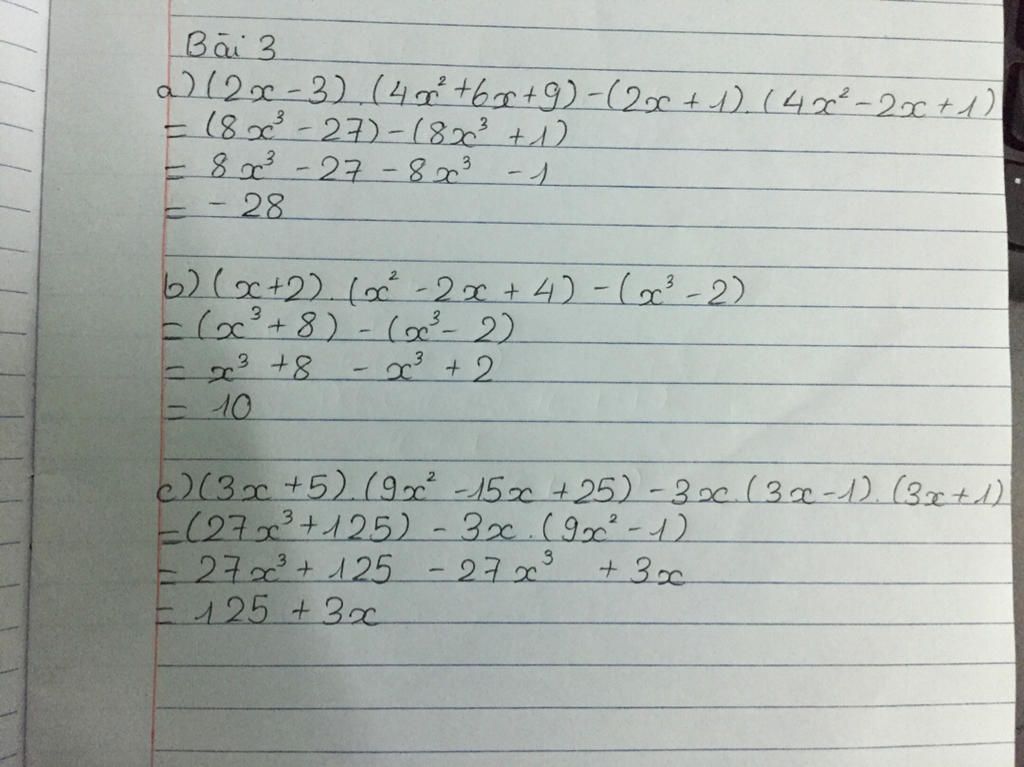 Bài 3
a) (2x - 3) . (4x² + 6x + 9) - (2x + 1) . (4x² - 2x + 1)
= (8x³ - 27) - (8x³ + 1)
= 8x³ - 27 - 8x³ - 1
= - 28
b) (x + 2) . (x² - 2x + 4) - (x³ - 2)
= (x³ + 8) - (x³ - 2)
= x³ + 8 - x³ + 2
= 10
c) (3x + 5) . (9x² - 15x + 25) - 3x . (3x - 1) . (3x + 1)
= (27x³ + 125) - 3x . (9x² - 1)
= 27x³ + 125 - 27x³ + 3x
= 125 + 3x